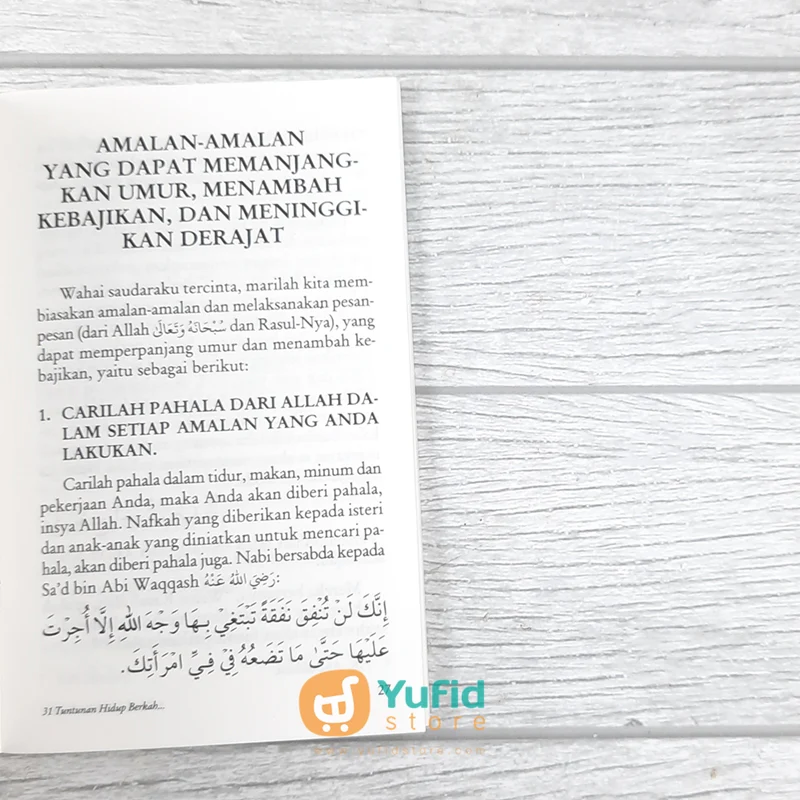 AMALAN-AMALAN
YANG DAPAT MEMANJANG-
KAN UMUR, MENAMBAH
KEBAJIKAN, DAN MENINGGI-
KAN DERAJAT
Wahai saudaraku tercinta, marilah kita mem-
biasakan amalan-amalan dan melaksanakan pesan-
pesan (dari Allah سُبْحَانَهُ وَتَعَالَى dan Rasul-Nya), yang
dapat memperpanjang umur dan menambah ke-
bajikan, yaitu sebagai berikut:
1. CARILAH PAHALA DARI ALLAH DA-
LAM SETIAP AMALAN YANG ANDA
LAKUKAN.
Carilah pahala dalam tidur, makan, minum dan
pekerjaan Anda, maka Anda akan diberi pahala,
insya Allah. Nafkah yang diberikan kepada isteri
dan anak-anak yang diniatkan untuk mencari pa-
hala, akan diberi pahala juga. Nabi bersabda kepada
Sa'd bin Abi Waqqash رَضِيَ اللهُ عَنْهُ:
إِنَّكَ لَنْ تُنْفِقَ نَفَقَةً تَبْتَغِيْ بِهَا وَجْهَ اللهِ إِلَّا أُجِرْتَ
عَلَيْهَا حَتَّى مَا تَضَعُهُ فِيْ فِيِّ امْرَأَتِكَ.
27
31 Tuntunan Hidup Berkah...
Yufid
store